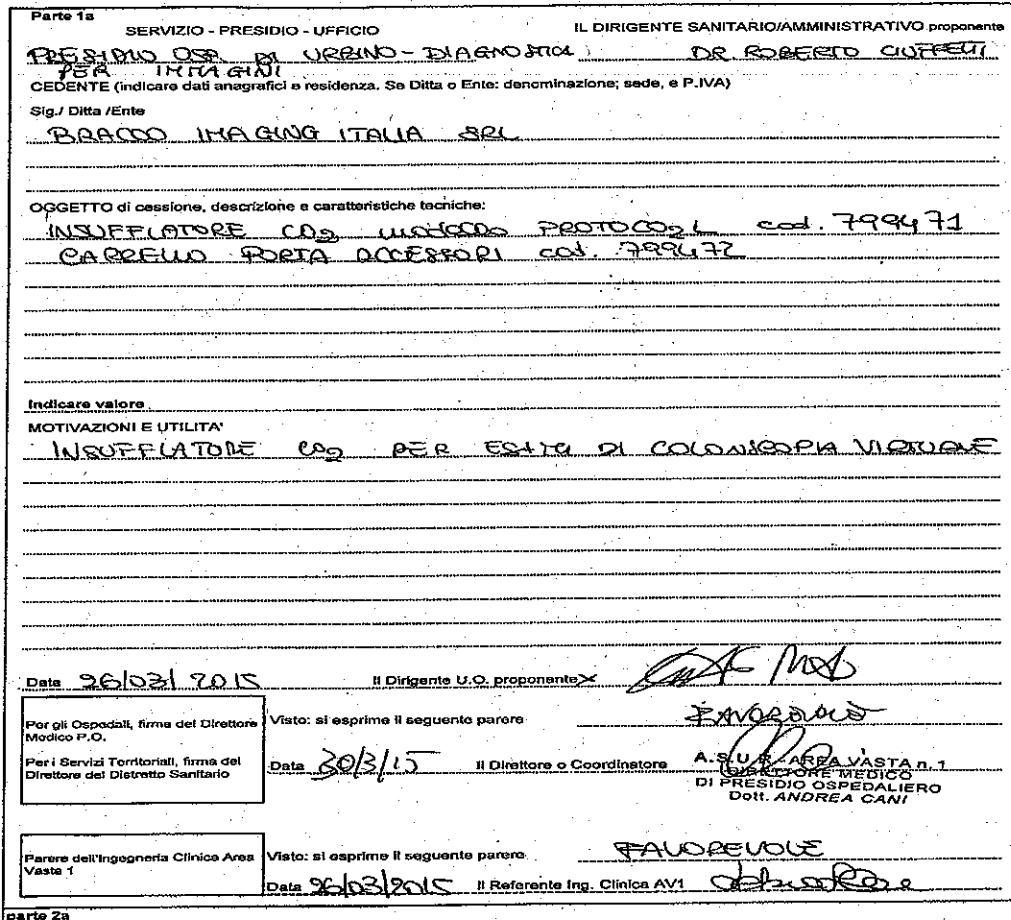 Parte 1a
SERVIZIO - PRESIDIO - UFFICIO IL DIRIGENTE SANITARIO/AMMINISTRATIVO proponente
PRESIDIO OSP. DI URBINO - DIAGNOSTICA DR. ROBERTO
PER IMMAGINI
CEDENTE (indicare dati anagrafici e residenza. Se Ditta o Ente: denominazione; sede, e P.IVA)
Sig./ Ditta /Ente
BRACCO IMAGING ITALIA SRL
OGGETTO di cessione, descrizione e caratteristiche tecniche:
INSUFFLATORE CO2 PROTOCO2L cod. 799471
CARRELLO PORTA ACCESSORI cod. 799472
Indicare valore
MOTIVAZIONI E UTILITA'
INSUFFLATORE CO2 PER DI COLONSCOPIA VIRTUALE
Data 26/03/2015 Il Dirigente U.O. proponente X
Per gli Ospedali, firma del Direttore
Medico P.O.
Per i Servizi Territoriali, firma del
Direttore del Distretto Sanitario
Visto: si esprime il seguente parere FAVOREVOLE
Data 30/3/15 Il Direttore o Coordinatore A.S.U.R. - AREA VASTA n. 1
DIRETTORE MEDICO
DI PRESIDIO OSPEDALIERO
Dott. ANDREA CANI
Parere dell'Ingegneria Clinica Area
Vasta 1
Visto: si esprime il seguente parere FAVOREVOLE
Data 26/03/2015 Il Referente Ing. Clinica AV1
parte 2a